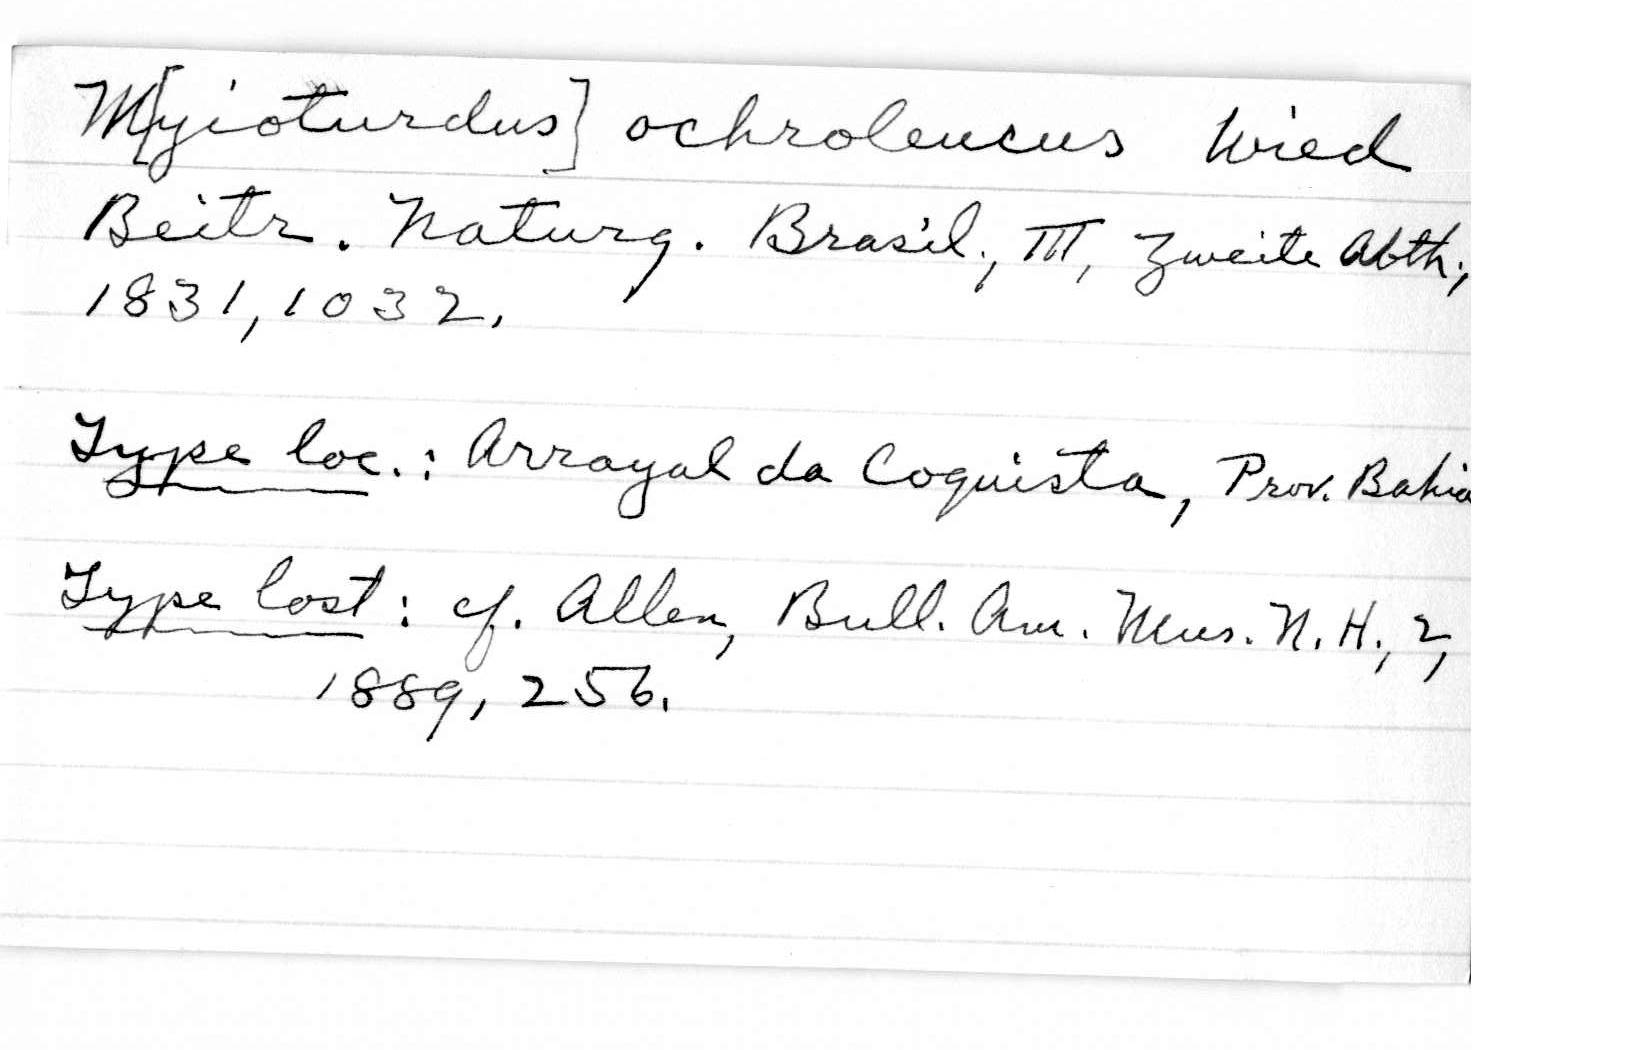 M[yioturdus] ochroleucus Wied
Beitr. Naturg. Brasil., III, Zweite Abth.,
1831, 1032.
Type loc.: Arrayal da Coquista, Prov. Bahia
Type lost: cf. Allen, Bull. Am. Mus. N. H., 2,
1889, 256.